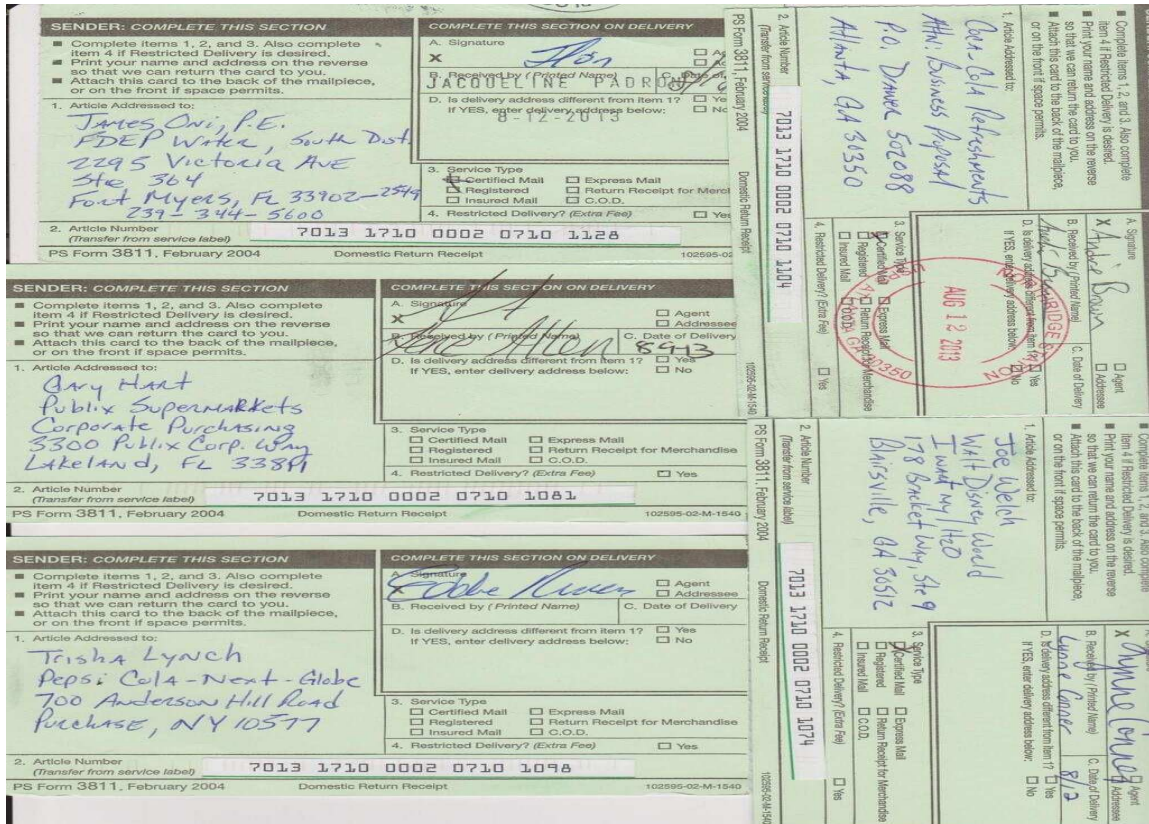 SENDER: COMPLETE THIS SECTION
■ Complete items 1, 2, and 3. Also complete
item 4 if Restricted Delivery is desired.
■ Print your name and address on the reverse
so that we can return the card to you.
■ Attach this card to the back of the mailpiece,
or on the front if space permits.
1. Article Addressed to:
James Oni, P.E.
FDEP Water, South Dist.
2295 Victoria Ave
Ste 364
Fort Myers, FL 33902-2549
239-344-5600
2. Article Number
(Transfer from service label)
7013 1710 0002 0710 1128
PS Form 3811, February 2004
Domestic Return Receipt
102595-02
COMPLETE THIS SECTION ON DELIVERY
A. Signature
X
B. Received by (Printed Name)
JACQUELINE PADRON
D. Is delivery address different from item 1?
If YES, enter delivery address below:
8-12-2013
3. Service Type
Certified Mail
Express Mail
Registered
Return Receipt for Merch
Insured Mail
C.O.D.
4. Restricted Delivery? (Extra Fee)
SENDER: COMPLETE THIS SECTION
■ Complete items 1, 2, and 3. Also complete
item 4 if Restricted Delivery is desired.
■ Print your name and address on the reverse
so that we can return the card to you.
■ Attach this card to the back of the mailpiece,
or on the front if space permits.
1. Article Addressed to:
Gary Hart
Publix Supermarkets
Corporate Purchasing
3300 Publix Corp. Way
Lakeland, FL
2. Article Number
(Transfer from service label)
7013 1710 0002 0710 1081
PS Form 3811, February 2004
Domestic Return Receipt
102595-02-M-1540
COMPLETE THIS SECTION ON DELIVERY
A. Signature
X
Agent
Addressee
B. Received by (Printed Name)
C. Date of Delivery
D. Is delivery address different from item 1? Yes
If YES, enter delivery address below: No
3. Service Type
Certified Mail Express Mail
Registered Return Receipt for Merchandise
Insured Mail C.O.D.
4. Restricted Delivery? (Extra Fee) Yes
SENDER: COMPLETE THIS SECTION
■ Complete items 1, 2, and 3. Also complete
item 4 if Restricted Delivery is desired.
■ Print your name and address on the reverse
so that we can return the card to you.
■ Attach this card to the back of the mailpiece,
or on the front if space permits.
1. Article Addressed to:
Trisha Lynch
Pepsi Cola-Next-Globe
700 Anderson Hill Road
Purchase, NY 10577
2. Article Number
(Transfer from service label)
7013 1710 0002 0710 1098
PS Form 3811, February 2004
Domestic Return Receipt
102595-02-M-1540
COMPLETE THIS SECTION ON DELIVERY
A. Signature
X
Agent
Addressee
B. Received by (Printed Name)
C. Date of Delivery
D. Is delivery address different from item 1? Yes
If YES, enter delivery address below: No
3. Service Type
Certified Mail Express Mail
Registered Return Receipt for Merchandise
Insured Mail C.O.D.
4. Restricted Delivery? (Extra Fee) Yes
■ Complete items 1, 2, and 3. Also complete
item 4 if Restricted Delivery is desired.
■ Print your name and address on the reverse
so that we can return the card to you.
■ Attach this card to the back of the mailpiece,
or on the front if space permits.
1. Article Addressed to:
Coca-Cola Refreshments
Attn: Business Proposal
P.O. Drawer 502088
Atlanta, GA 30350
2. Article Number
(Transfer from service label)
7013 1710 0002 0710 1104
PS Form 3811, February 2004
Domestic Return Receipt
102595-02-M-1540
A. Signature
X Andre Brown
Agent
Addressee
B. Received by (Printed Name)
C. Date of Delivery
D. Is delivery address different from item 1? Yes
If YES, enter delivery address below: No
AUG 12 2013
3. Service Type
Certified Mail Express Mail
Registered Return Receipt for Merchandise
Insured Mail C.O.D.
4. Restricted Delivery? (Extra Fee) Yes
■ Complete items 1, 2, and 3. Also complete
item 4 if Restricted Delivery is desired.
■ Print your name and address on the reverse
so that we can return the card to you.
■ Attach this card to the back of the mailpiece,
or on the front if space permits.
1. Article Addressed to:
Joe Welch
Walt Disney World
I want my H2O
178 Bracket Way, Ste 9
Blairsville, GA 30512
2. Article Number
(Transfer from service label)
7013 1710 0002 0710 1074
PS Form 3811, February 2004
Domestic Return Receipt
102595-02-M-1540
X Lynne Conner
Agent
Addressee
B. Received by (Printed Name)
Lynne Conner
C. Date of Delivery
8/12
D. Is delivery address different from item 1? Yes
If YES, enter delivery address below: No
3. Service Type
Certified Mail Express Mail
Registered Return Receipt for Merchandise
Insured Mail C.O.D.
4. Restricted Delivery? (Extra Fee) Yes